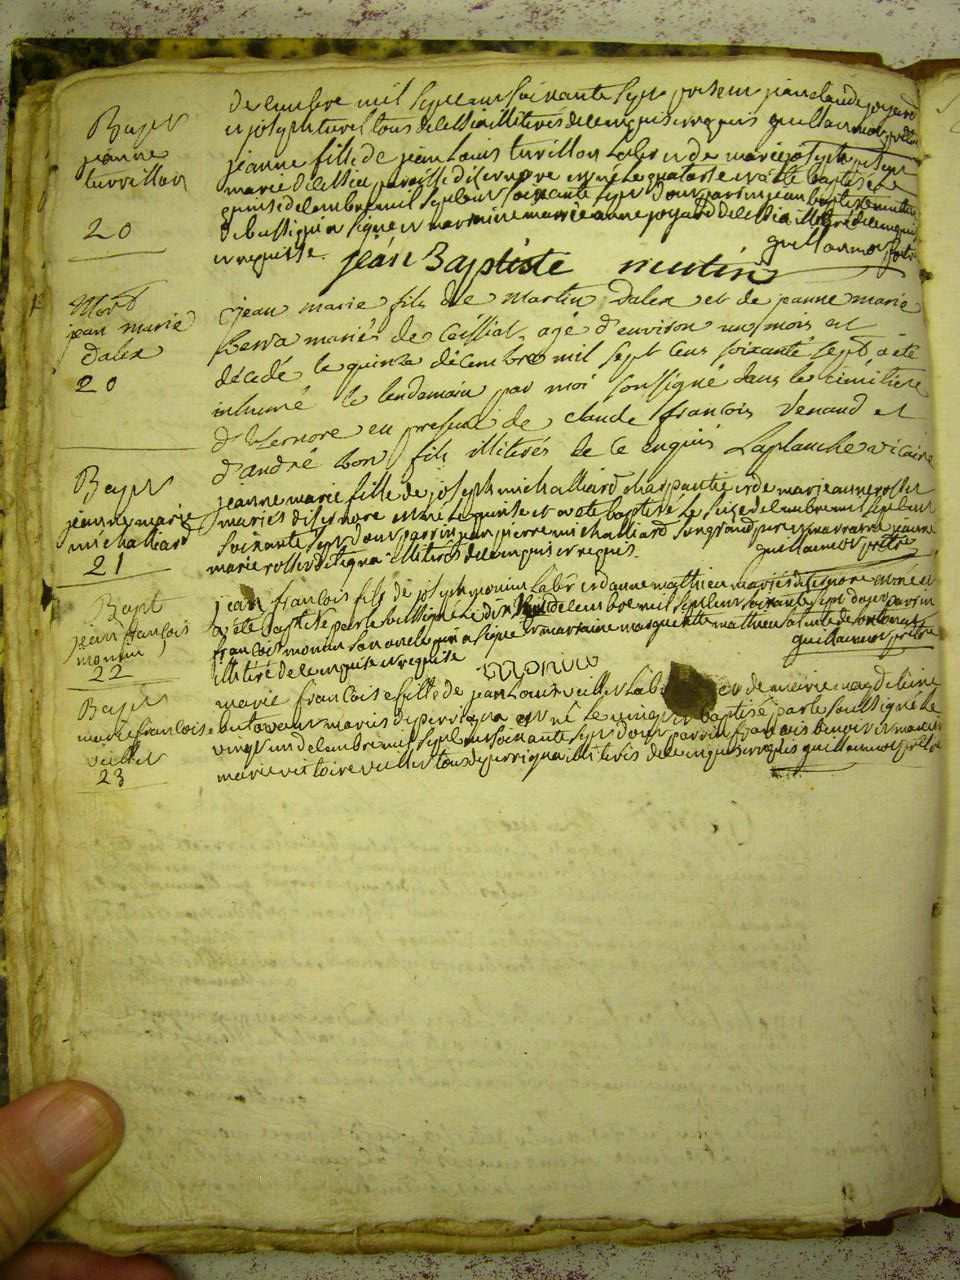 decembre mil sept cent soixante sept presens jean claude joyard
et joseph turel tous de lessia illiteres de ce enquis et requis guillaumot prêtre
Bapt
jeanne
turvillon
20
jeanne fille de jean Louis turvillon Laber et de marie joseph
marie de lessia paroisse dizernore est née le quatorse et a été baptisée
quinse decembre mil sept cent soixante sept dont parrin jean baptiste mutin
de bussi qui a signé et marraine marie anne joyard de lessia illitéré de ce enquise
et requise. guillaumot prêtre
jean Baptiste mutin
Mort
jean marie
dalex
20
jean marie fils de martin dalex et de jeanne marie
mariés de ceissiat, agé d'environ un mois est
décédé le quinze décembre mil sept cens soixante sept, a été
inhumé le lendemain par moi soussigné dans le cimitiere
d'Izernore en presence de claude françois venaud et
d'andré bon fils illiterés de ce enquis Laplanche vicaire
Bapt
jeanne marie
michalliard
21
jeanne marie fille de joseph michalliard charpantié et de marie anne rollet
mariés disernore est née le quinse et a été baptisé le seise decembre mil sept cent
soixante sept dont parrin jean pierre michalliard son grand pere et marraine jeanne
marie rollet illiterés de ce enquis et requis. guillaumot prêtre
Bapt
jean françois
monin
22
jean françois fils de joseph monin Laber et danne mathieu mariés disernore est né et
a été baptisé par le soussigné le dix huit decembre mil sept cent soixante sept dont parrin
françois monin son oncle qui a signé et marraine marguerite mathieu sa tante
illitéré de ce enquise et requise guillaumot prêtre
monin
Bapt
marie françoise
vuillet
23
marie françoise fille de jean Louis vuillet Laber et de marie magdeleine
mariés de perrigna est né le vingt et baptisé par le soussigné le
vingt un decembre mil sept cent soixante sept dont parrin françois benoit et marraine
marie victoire vuillet tous de perrigna illiterés de ce enquis et requis guillaumot prêtre